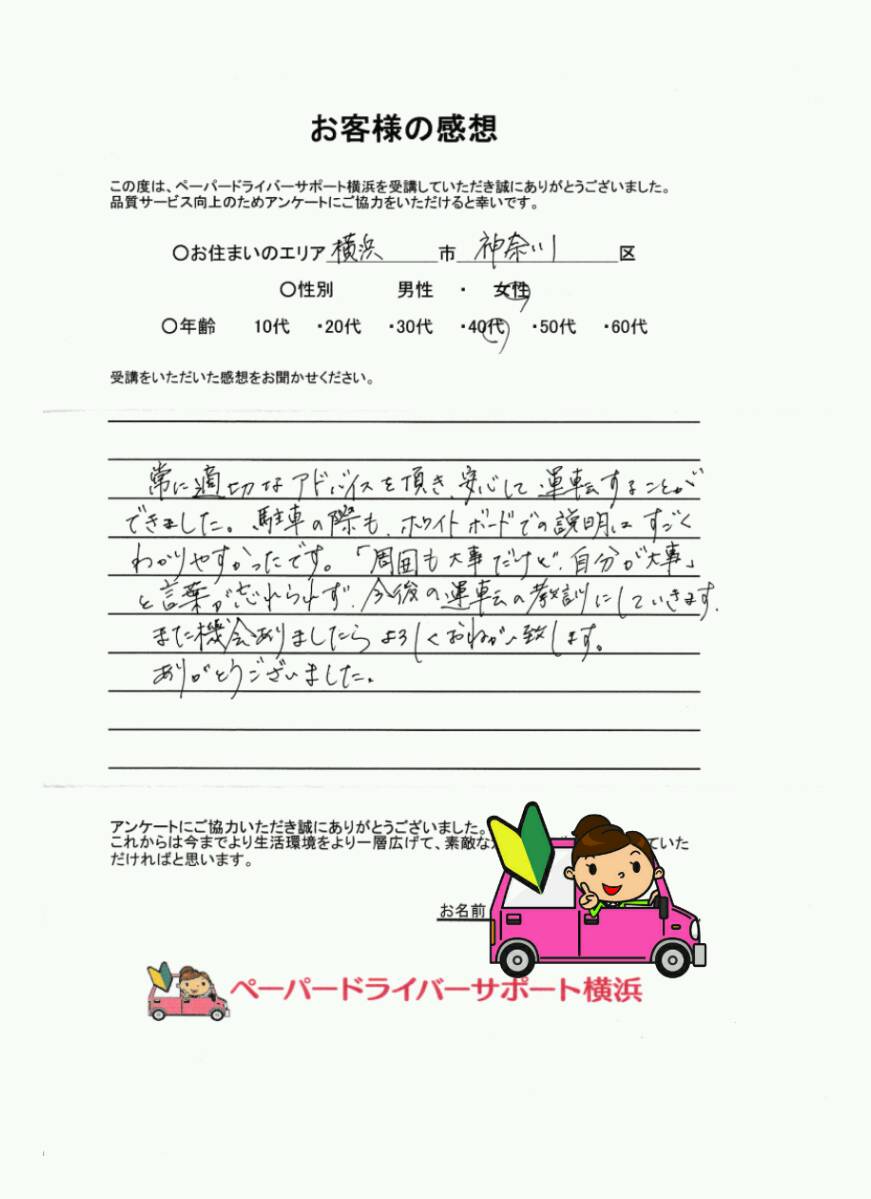 お客様の感想
この度は、ペーパードライバーサポート横浜を受講していただき誠にありがとうございました。
品質サービス向上のためアンケートにご協力をいただけると幸いです。
〇お住まいのエリア 横浜 市 神奈川 区
〇性別 男性 ・ 女性
〇年齢 10代 ・20代 ・30代 ・40代 ・50代 ・60代
受講をいただいた感想をお聞かせください。
常に適切なアドバイスを頂き、安心して運転することが
できました。駐車の際も、ホワイトボードでの説明はすごく
わかりやすかったです。「周囲も大事だけど、自分が大事」
と言葉が忘れられず、今後の運転の教訓にしていきます。
また機会ありましたらよろしくおねがい致します。
ありがとうございました。
アンケートにご協力いただき誠にありがとうございました。
これからは今までより生活環境をより一層広げて、素敵な ていた
だければと思います。
お名前
ペーパードライバーサポート横浜